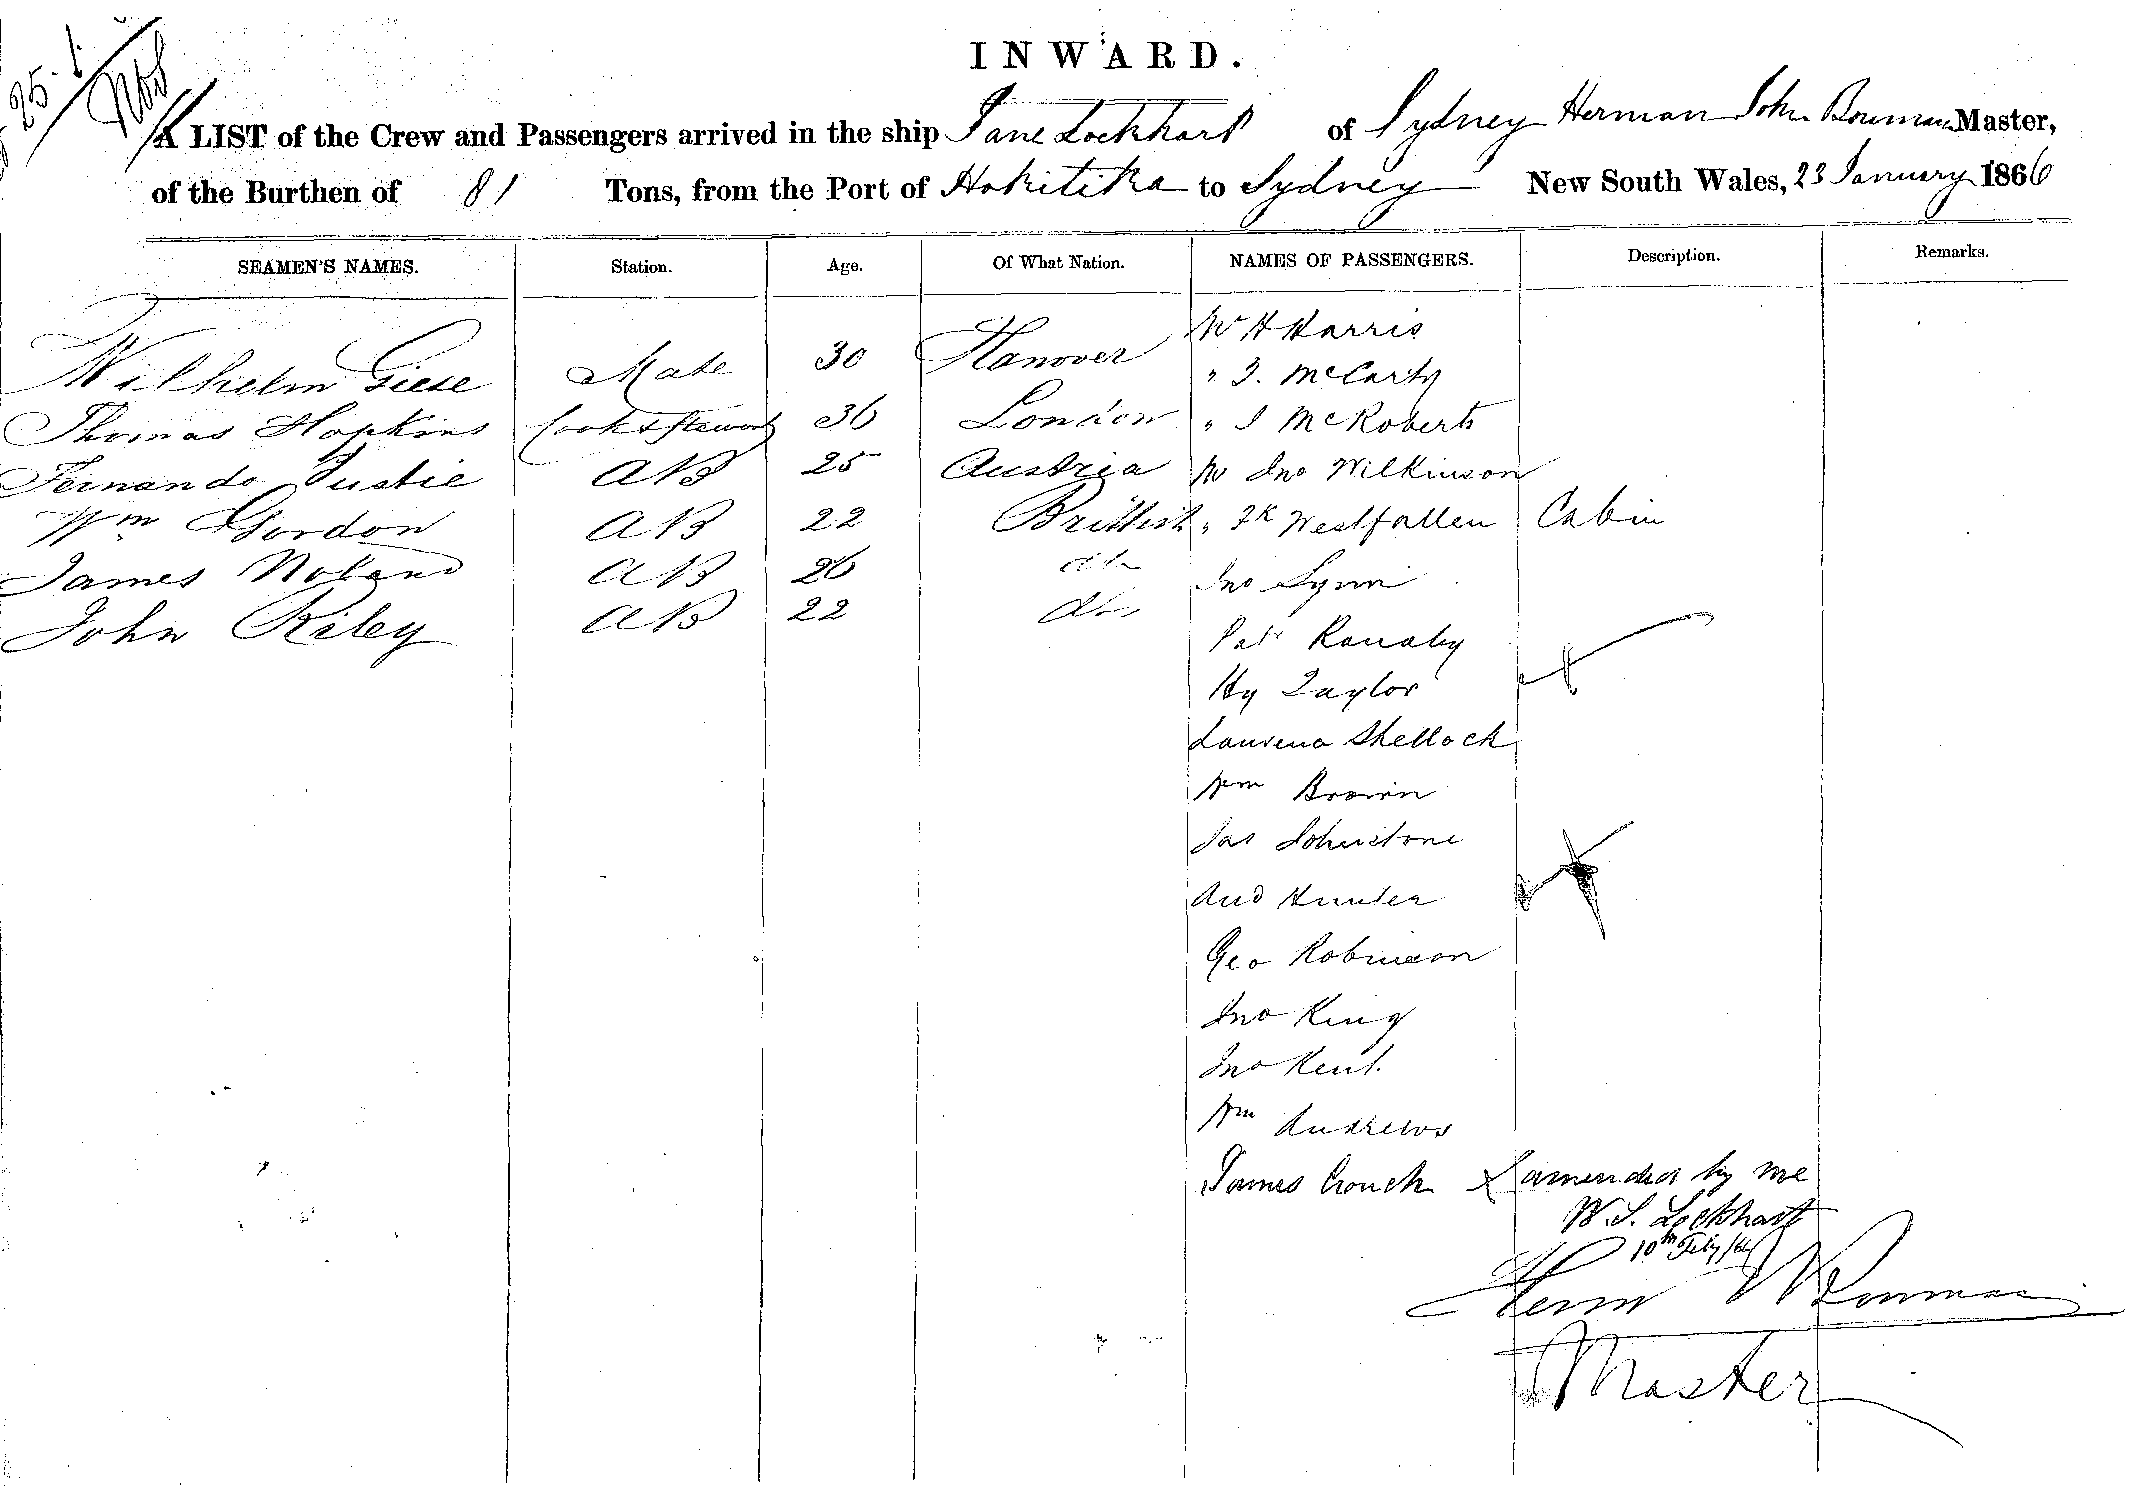 25.1
INWARD.
A LIST of the Crew and Passengers arrived in the ship Jane Lockhart of Sydney Herman John Bowman Master,
of the Burthen of 81 Tons, from the Port of Hokitika to Sydney New South Wales, 23 January 1866
SEAMEN'S NAMES. Station. Age. Of What Nation. NAMES OF PASSENGERS. Description. Remarks.
Wilhelm Giese Mate 30 Hanover
Thomas Hopkins Cook & Steward 36 London
Fernando AB 25 Austria
Wm Gordon AB 22 Brittish
James Noland AB 26 do
John Riley AB 22 do
Mr H Harris
" J. McCarty
" J McRoberts
Mr Jno Wilkinson
" Fk Westfallen Cabin
Jno Lynn
Patk
Hy Taylor
Shellock
Wm Brown
Jas Johnstone
And Hunter
Geo Robinson
Jno King
Jno Kent.
Wm Andrews
James Crouch X amended by me
W. S. Lockhart
10th Feby/66
Herm Bowman
Master